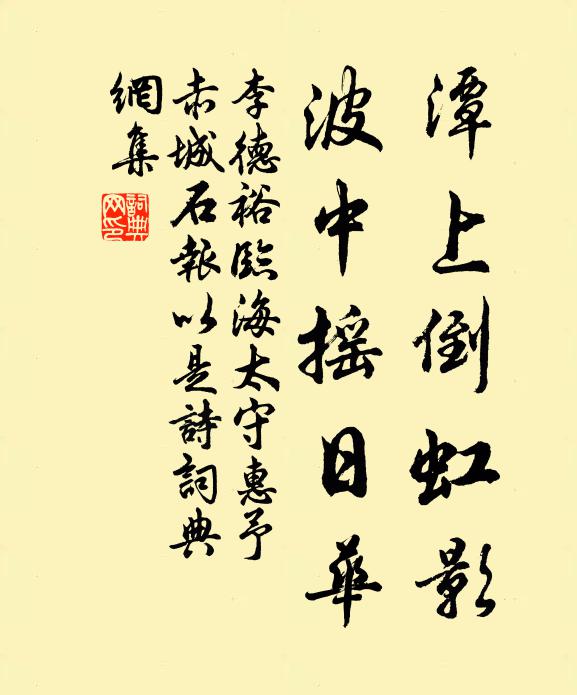 潭上倒虹影
波中摇日華
李德裕臨海太守惠予
赤城石報以是詩詞典
網集
詞典網印